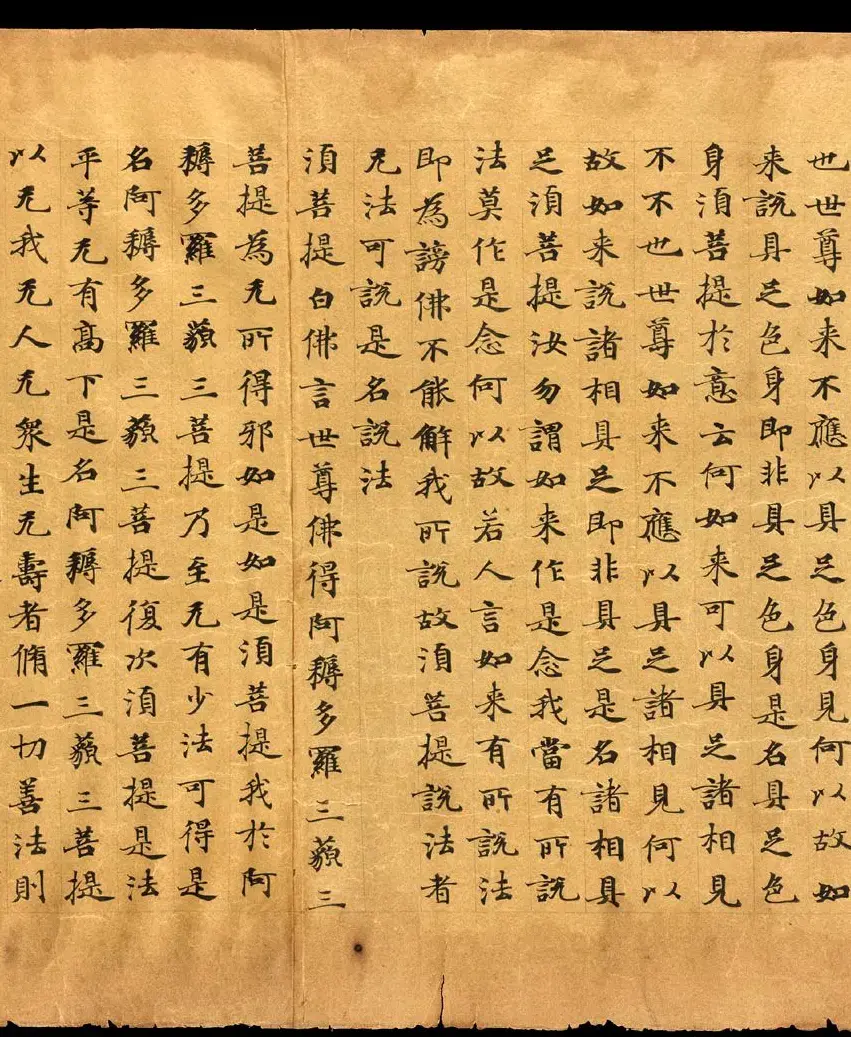 也世尊如来不應以具足色身見何以故如
来說具足色身即非具足色身是名具足色
身湏菩提扵意云何如来可以具足諸相見
不不也世尊如来不應以具足諸相見何以
故如来說諸相具足即非具足是名諸相具
足湏菩提汝勿謂如来作是念我當有所說
法莫作是念何以故若人言如来有所說法
即為謗佛不能解我所說故湏菩提說法者
无法可說是名說法
湏菩提白佛言世尊佛得阿耨多羅三藐三
菩提為无所得邪如是如是湏菩提我扵阿
耨多羅三藐三菩提乃至无有少法可得是
名阿耨多羅三藐三菩提復次湏菩提是法
平等无有高下是名阿耨多羅三藐三菩提
以无我无人无衆生无壽者脩一切善法則